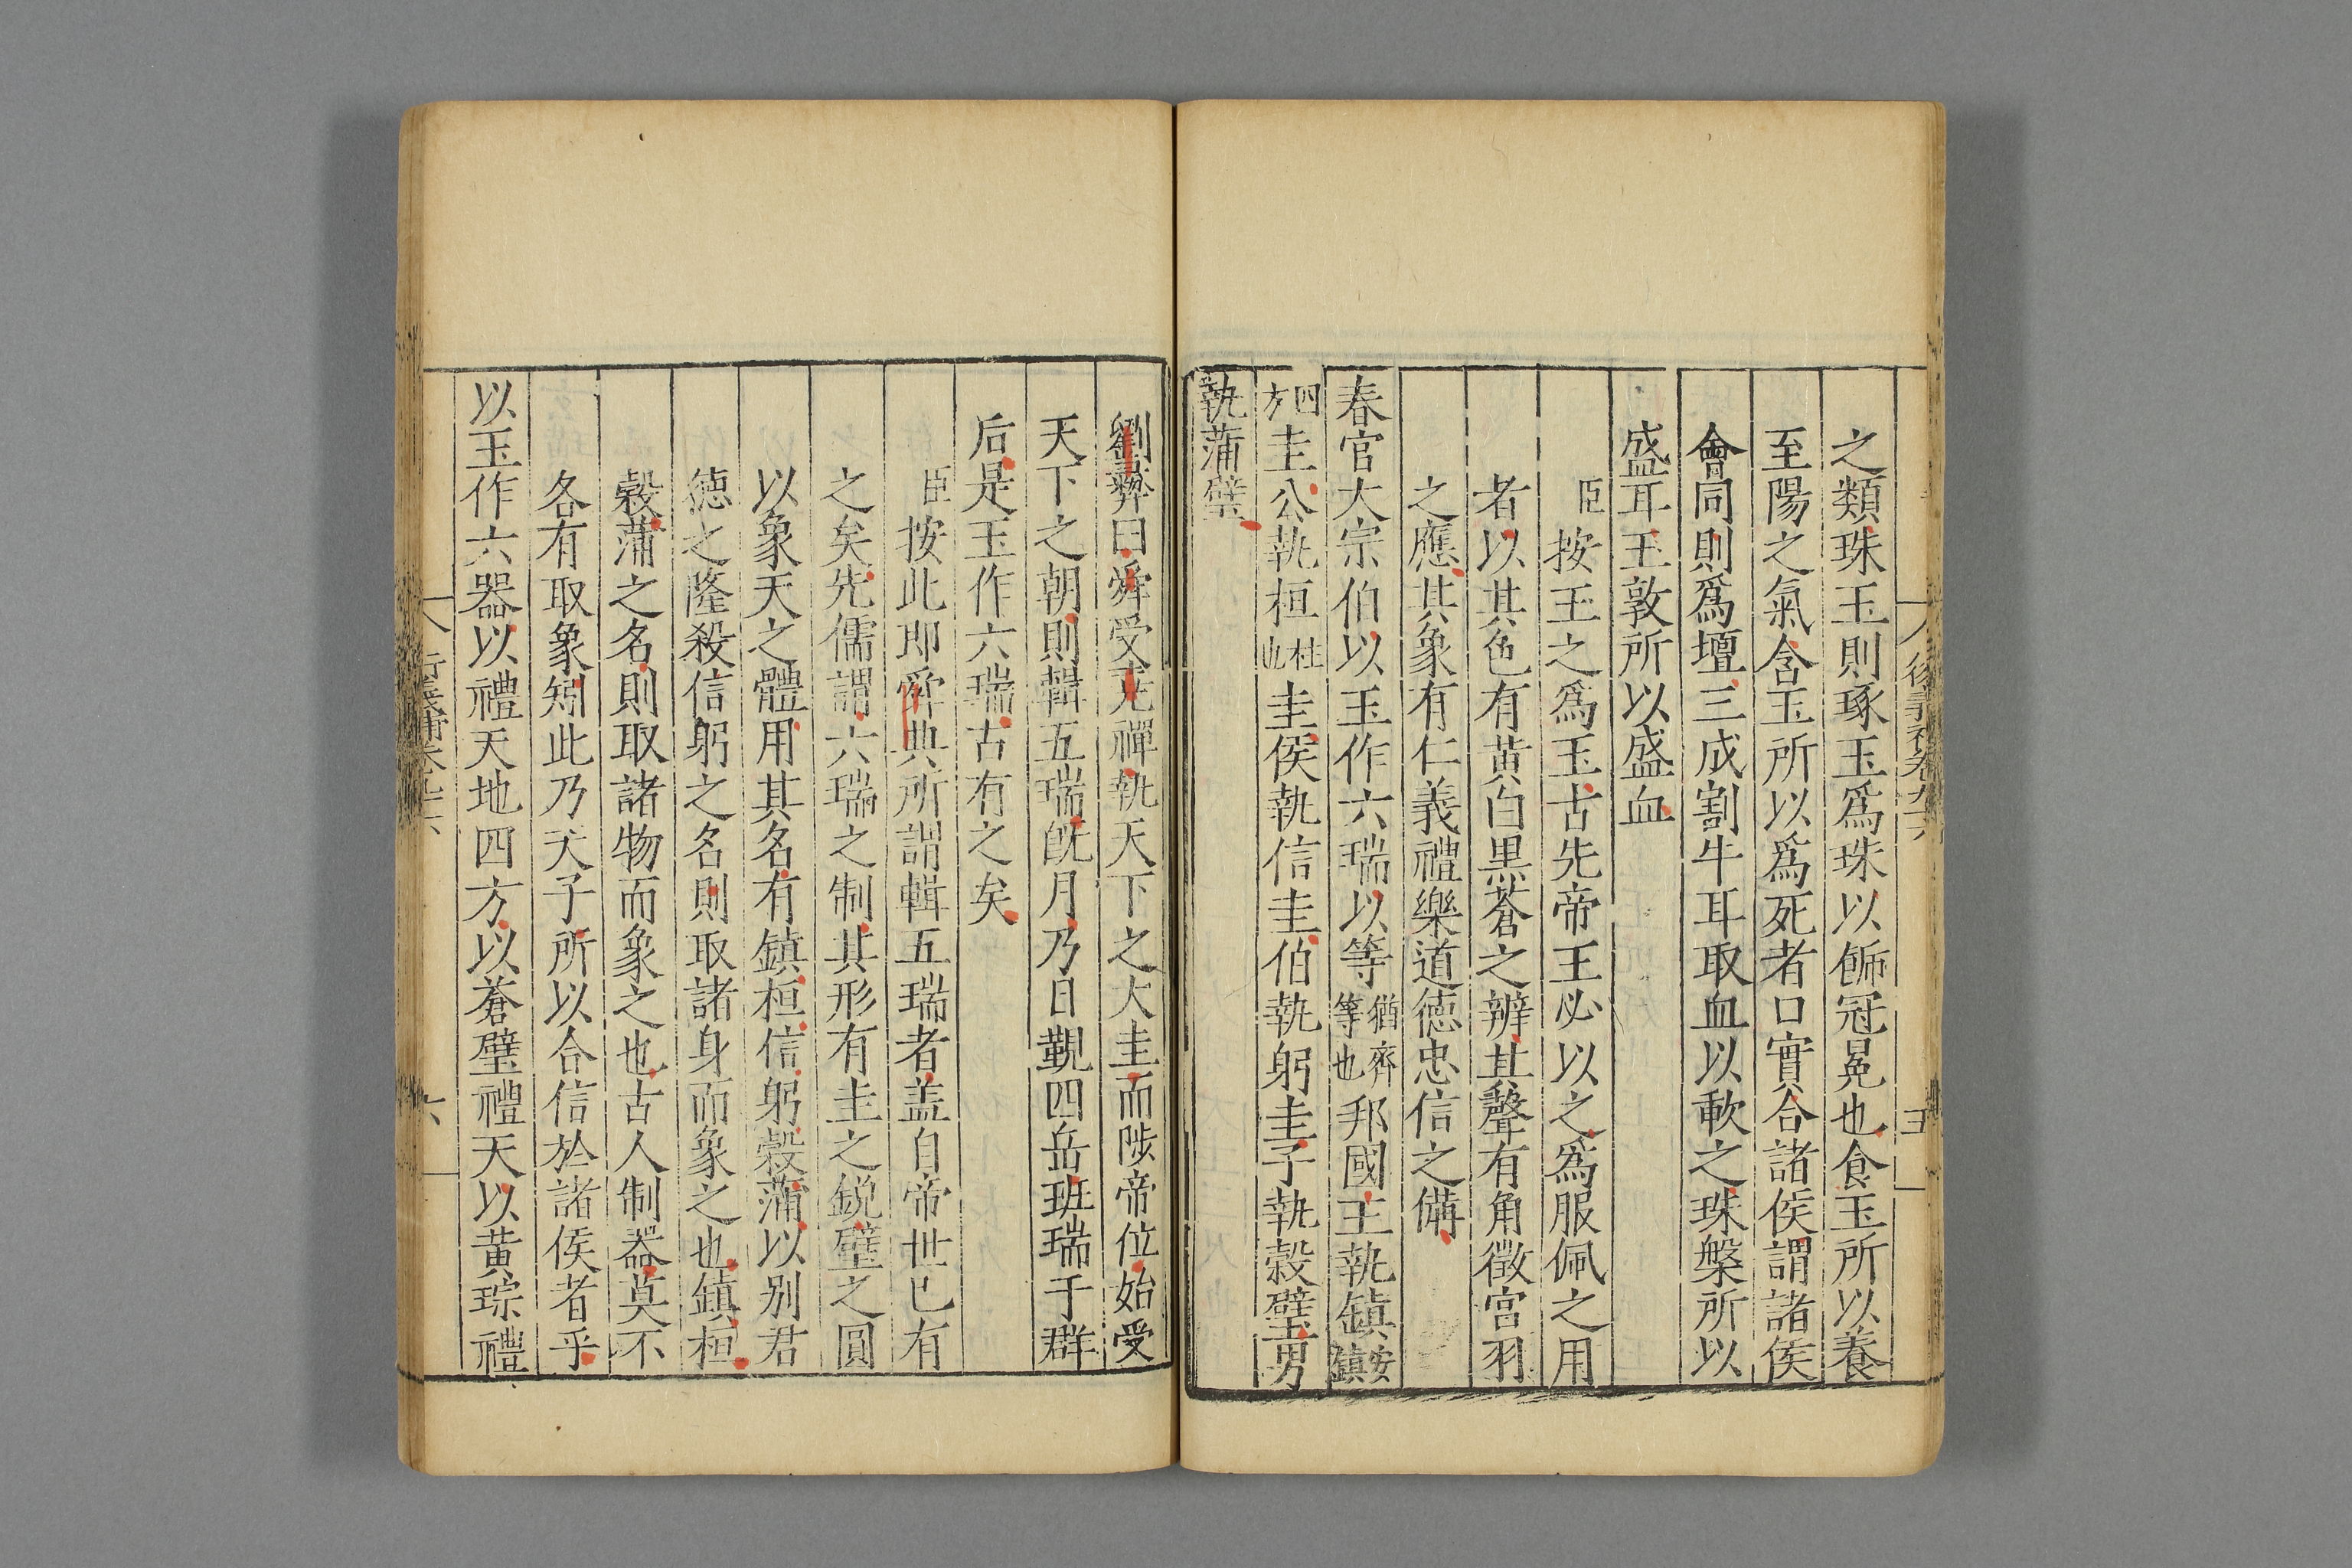 之類珠玉則琢玉爲珠以飾冠冕也食玉所以養
至陽之氣含玉所以爲死者口實合諸侯謂諸侯
會同則爲壇三成割牛耳取血以歃之珠槃所以
盛耳玉敦所以盛血
臣按玉之爲玉古先帝王必以之爲服佩之用
者以其色有黄白黒蒼之辨其聲有角徵宫羽
之應其象有仁義禮樂道德忠信之備
春官大宗伯以玉作六瑞以等猶齊等也邦國王執鎮安鎮
四方圭公執桓柱也圭侯執信圭伯執躬圭子執榖璧男
執蒲璧
劉彛曰舜受堯禪執天下之大圭而陟帝位始受
天下之朝則輯五瑞旣月乃日覲四岳班瑞于群
后是玉作六瑞古有之矣
臣按此即舜典所謂輯五瑞者盖自帝世已有
之矣先儒謂六瑞之制其形有圭之鋭璧之圓
以象天之體用其名有鎮桓信躬榖蒲以别君
德之隆殺信躬之名則取諸身而象之也鎮桓
榖蒲之名則取諸物而象之也古人制器莫不
各有取象矧此乃天子所以合信於諸侯者乎
以玉作六器以禮天地四方以蒼璧禮天以黄琮禮
六